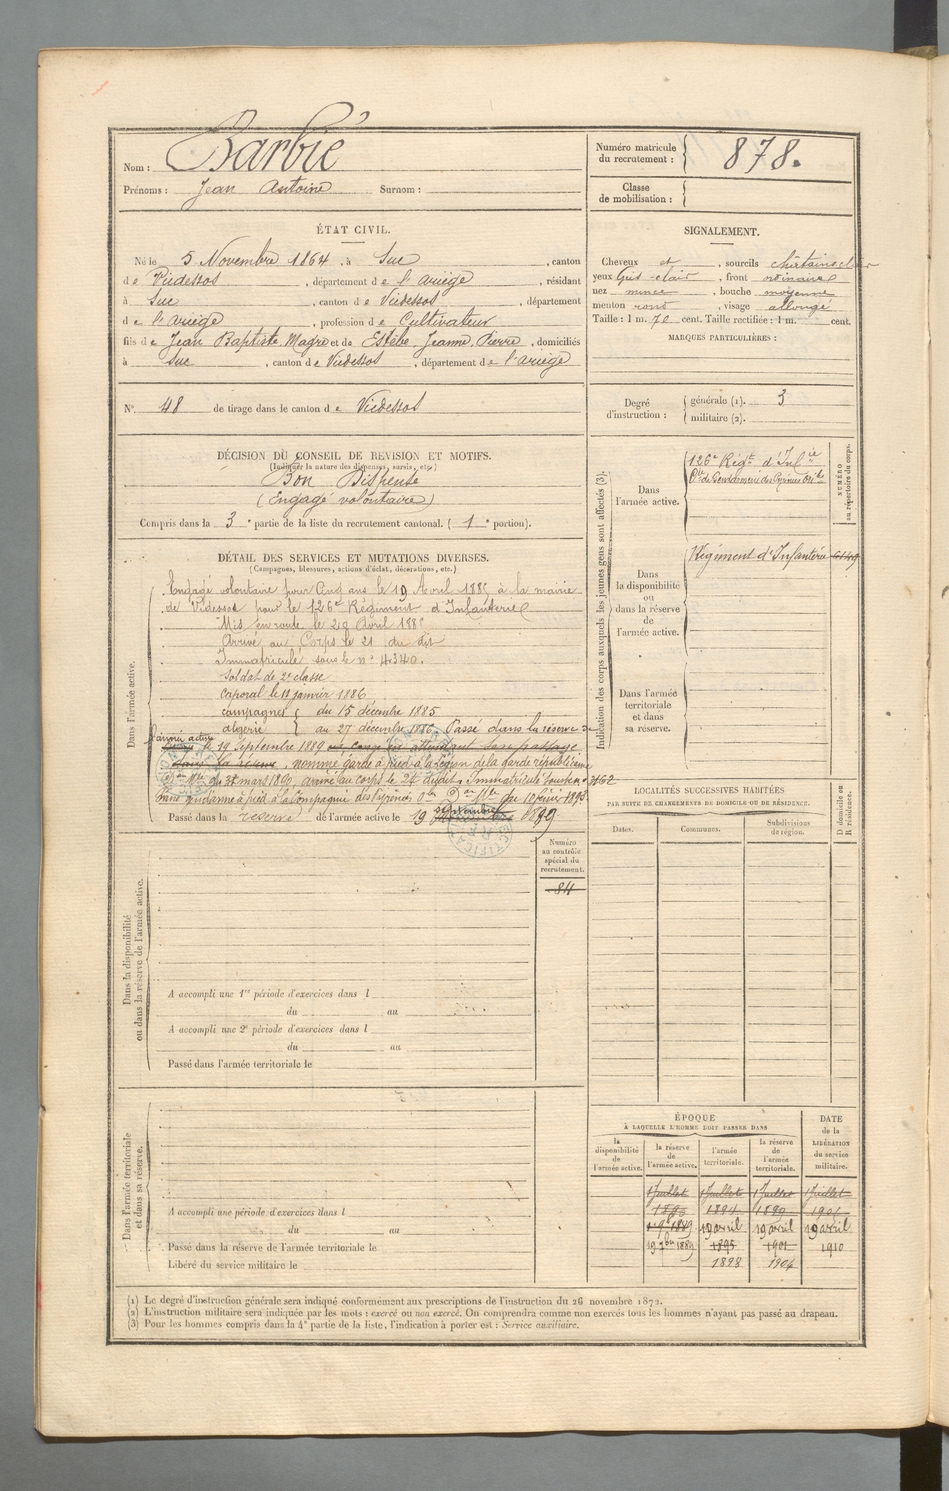 Nom : Barbié
Prénoms : Jean Antoine Surnom :
Numéro matricule du recrutement : 878.
Classe de mobilisation :
ÉTAT CIVIL.
Né le 5 Novembre 1864, à Suc, canton
de Vicdessos, département de l'ariège, résidant
à Suc, canton de Vicdessos, département
de l'ariège, profession de Cultivateur
fils de Jean Baptiste, Magre et de Estèbe, Jeanne, Pierre, domiciliés
à Suc, canton de Vicdessos, département de l'ariège
N° 48 de tirage dans le canton de Vicdessos
SIGNALEMENT.
Cheveux et, sourcils châtains clair
yeux Gris-clair, front ordinaire
nez mince, bouche moyenne
menton rond, visage allongé
Taille : 1 m. 70 cent. Taille rectifiée : 1 m. cent.
MARQUES PARTICULIÈRES :
Degré d'instruction : générale (1). 3
militaire (2).
DÉCISION DU CONSEIL DE REVISION ET MOTIFS.
(Indiquer la nature des dispenses, sursis, etc.)
Bon Dispensé
(Engagé volontaire)
Compris dans la 3e partie de la liste du recrutement cantonal. (1e portion).
DÉTAIL DES SERVICES ET MUTATIONS DIVERSES.
(Campagnes, blessures, actions d'éclat, décorations, etc.)
Dans l'armée active.
Engagé volontaire pour Cinq ans le 19 Avril 1885 à la mairie
de Vicdessos pour le 126e Régiment d'Infanterie
Mis en route le 20 Avril 1885
Arrivé au Corps le 21 du dit
Immatriculé sous le n° 4340.
Soldat de 2e classe
Caporal le 11 janvier 1886
campagnes du 15 décembre 1885
algérie au 27 décembre 1886. Passé dans la réserve de
l'armée active le 19 Septembre 1889 en congé en attendant son passage
dans la réserve, nommé garde à pied à la Légion de la garde républicaine
du 31 mars 1890, arrivé au corps le 24 du dit, Immatriculé sous le n° 3162
Passé gendarme à pied à la Compagnie des Pyrénées Oles Don Mlle du 10 février 1893
Passé dans la réserve de l'armée active le 19 septembre 1889
Indication des corps auxquels les jeunes gens sont affectés (3).
NUMÉRO au répertoire du corps.
Dans l'armée active.
126e Régt d'Infie
Cie de Gendarmerie des Pyrénées Orles
Dans la disponibilité ou dans la réserve de l'armée active.
Régiment d'Infanterie
Dans l'armée territoriale et dans sa réserve.
LOCALITÉS SUCCESSIVES HABITÉES
PAR SUITE DE CHANGEMENTS DE DOMICILE OU DE RÉSIDENCE.
Dates. Communes. Subdivisions de région.
D domicile ou R résidence.
Dans la disponibilité ou dans la réserve de l'armée active.
Numéro au contrôle spécial du recrutement.
84
A accompli une 1re période d'exercices dans l
du au
A accompli une 2e période d'exercices dans l
du au
Passé dans l'armée territoriale le
Dans l'armée territoriale et dans sa réserve.
A accompli une période d'exercices dans l
du au
Passé dans la réserve de l'armée territoriale le
Libéré du service militaire le
ÉPOQUE
À LAQUELLE L'HOMME DOIT PASSER DANS
DATE de la LIBÉRATION du service militaire.
la disponibilité de l'armée active. la réserve de l'armée active. l'armée territoriale. la réserve de l'armée territoriale.
1 Juillet 1 Juillet 1 Juillet 1 Juillet
19 avril 19 avril 19 avril
19 7bre 1889 1895 1901 1910
1898 1904
(1) Le degré d'instruction générale sera indiqué conformément aux prescriptions de l'instruction du 26 novembre 1872.
(2) L'instruction militaire sera indiquée par les mots : exercé ou non exercé. On comprendra comme non exercés tous les hommes n'ayant pas passé au drapeau.
(3) Pour les hommes compris dans la 4e partie de la liste, l'indication à porter est : Service auxiliaire.